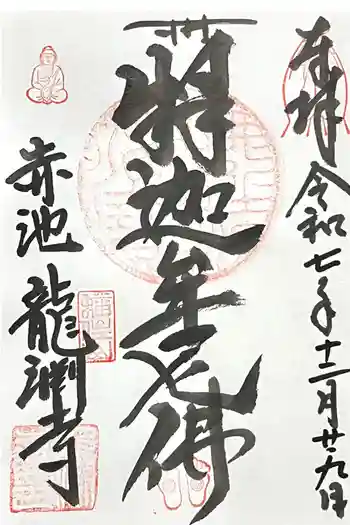 奉拝 令和七年十二月廿九日
南無釈迦牟尼佛
赤池 龍渕寺